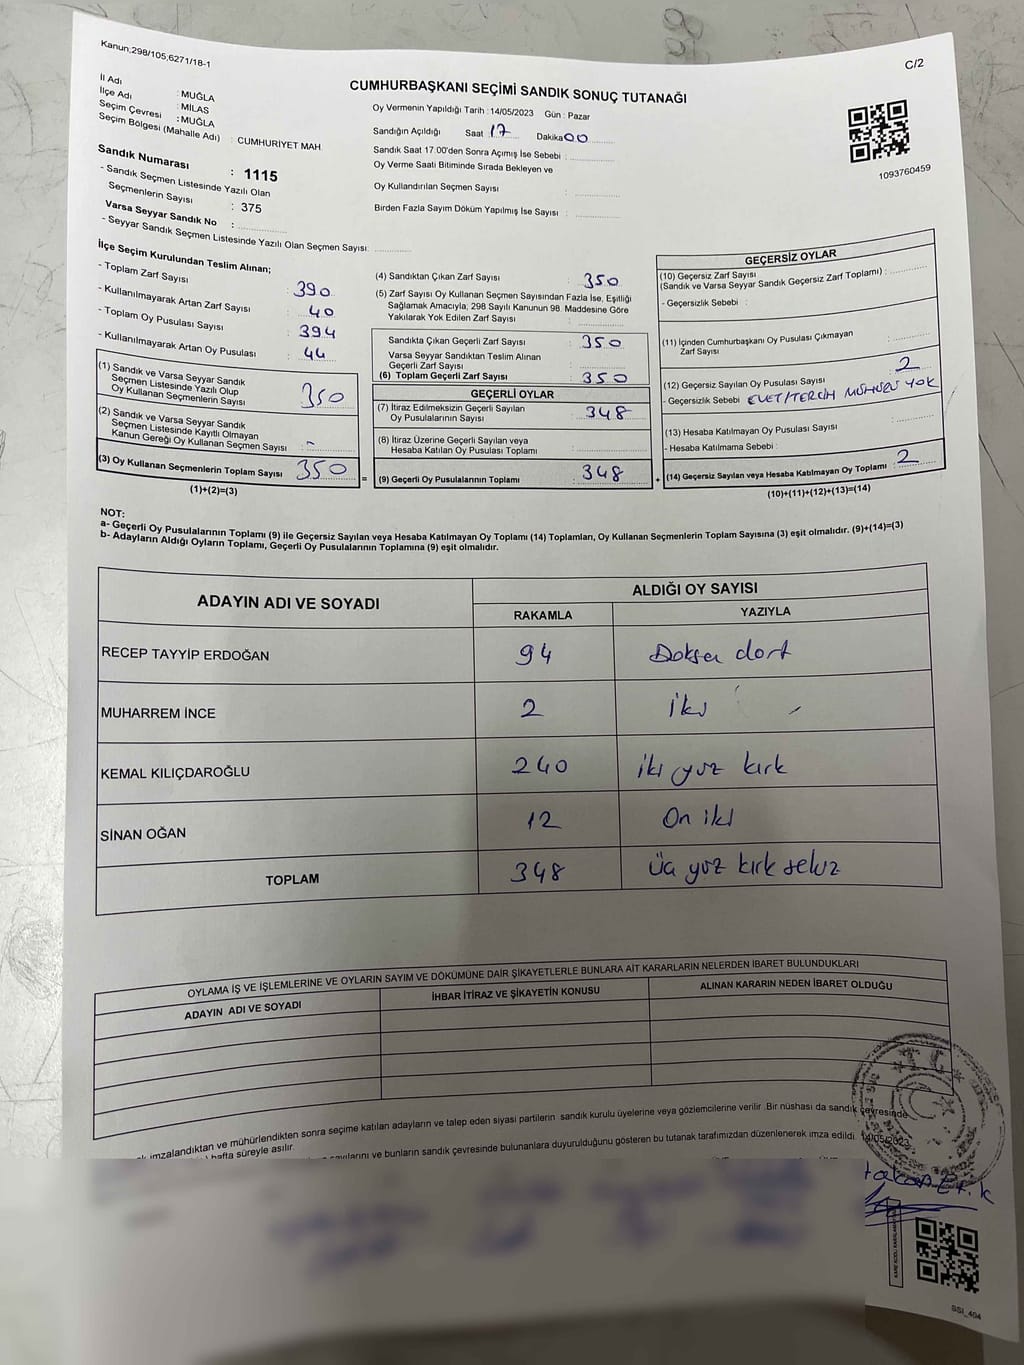 Kanun,298/105,6271/18-1
C/2
CUMHURBAŞKANI SEÇİMİ SANDIK SONUÇ TUTANAĞI
İl Adı : MUĞLA
İlçe Adı : MİLAS
Seçim Çevresi : MUĞLA
Seçim Bölgesi (Mahalle Adı) : CUMHURİYET MAH.
Oy Vermenin Yapıldığı Tarih :14/05/2023 Gün : Pazar
Sandığın Açıldığı Saat 17 Dakika 00
Sandık Saat 17.00'den Sonra Açımış İse Sebebi :
Oy Verme Saati Bitiminde Sırada Bekleyen ve
Oy Kullandırılan Seçmen Sayısı :
Birden Fazla Sayım Döküm Yapılmış İse Sayısı :
1093760459
Sandık Numarası : 1115
- Sandık Seçmen Listesinde Yazılı Olan
Seçmenlerin Sayısı : 375
Varsa Seyyar Sandık No :
- Seyyar Sandık Seçmen Listesinde Yazılı Olan Seçmen Sayısı:
İlçe Seçim Kurulundan Teslim Alınan;
- Toplam Zarf Sayısı : 390
- Kullanılmayarak Artan Zarf Sayısı : 40
- Toplam Oy Pusulası Sayısı : 394
- Kullanılmayarak Artan Oy Pusulası : 44
(1) Sandık ve Varsa Seyyar Sandık
Seçmen Listesinde Yazılı Olup
Oy Kullanan Seçmenlerin Sayısı : 350
(2) Sandık ve Varsa Seyyar Sandık
Seçmen Listesinde Kayıtlı Olmayan
Kanun Gereği Oy Kullanan Seçmen Sayısı : -
(3) Oy Kullanan Seçmenlerin Toplam Sayısı 350
(1)+(2)=(3)
(4) Sandıktan Çıkan Zarf Sayısı : 350
(5) Zarf Sayısı Oy Kullanan Seçmen Sayısından Fazla İse, Eşitliği
Sağlamak Amacıyla, 298 Sayılı Kanunun 98. Maddesine Göre
Yakılarak Yok Edilen Zarf Sayısı :
Sandıkta Çıkan Geçerli Zarf Sayısı : 350
Varsa Seyyar Sandıktan Teslim Alınan
Geçerli Zarf Sayısı :
(6) Toplam Geçerli Zarf Sayısı : 350
GEÇERLİ OYLAR
(7) İtiraz Edilmeksizin Geçerli Sayılan
Oy Pusulalarının Sayısı : 348
(8) İtiraz Üzerine Geçerli Sayılan veya
Hesaba Katılan Oy Pusulası Toplamı :
(9) Geçerli Oy Pusulalarının Toplamı : 348
GEÇERSİZ OYLAR
(10) Geçersiz Zarf Sayısı
(Sandık ve Varsa Seyyar Sandık Geçersiz Zarf Toplamı) :
- Geçersizlik Sebebi :
(11) İçinden Cumhurbaşkanı Oy Pusulası Çıkmayan
Zarf Sayısı :
(12) Geçersiz Sayılan Oy Pusulası Sayısı : 2
- Geçersizlik Sebebi EVET/TERCİH MÜHÜRÜ YOK
(13) Hesaba Katılmayan Oy Pusulası Sayısı :
- Hesaba Katılmama Sebebi :
(14) Geçersiz Sayılan veya Hesaba Katılmayan Oy Toplamı : 2
(10)+(11)+(12)+(13)=(14)
NOT:
a- Geçerli Oy Pusulalarının Toplamı (9) ile Geçersiz Sayılan veya Hesaba Katılmayan Oy Toplamı (14) Toplamları, Oy Kullanan Seçmenlerin Toplam Sayısına (3) eşit olmalıdır. (9)+(14)=(3)
b- Adayların Aldığı Oyların Toplamı, Geçerli Oy Pusulalarının Toplamına (9) eşit olmalıdır.
ADAYIN ADI VE SOYADI
ALDIĞI OY SAYISI
RAKAMLA YAZIYLA
RECEP TAYYİP ERDOĞAN 94 Doksen dort
MUHARREM İNCE 2 iki
KEMAL KILIÇDAROĞLU 240 iki yuz kırk
SİNAN OĞAN 12 On iki
TOPLAM 348 Üç yuz kırk sekiz
OYLAMA İŞ VE İŞLEMLERİNE VE OYLARIN SAYIM VE DÖKÜMÜNE DAİR ŞİKAYETLERLE BUNLARA AİT KARARLARIN NELERDEN İBARET BULUNDUKLARI
ADAYIN ADI VE SOYADI İHBAR İTİRAZ VE ŞİKAYETİN KONUSU ALINAN KARARIN NEDEN İBARET OLDUĞU
imzalandıktan ve mühürlendikten sonra seçime katılan adayların ve talep eden siyasi partilerin sandık kurulu üyelerine veya gözlemcilerine verilir .Bir nüshası da sandık çevresinde
hafta süreyle asılır.
sayılarını ve bunların sandık çevresinde bulunanlara duyurulduğunu gösteren bu tutanak tarafımızdan düzenlenerek imza edildi. 14/05/2023
SSI_404